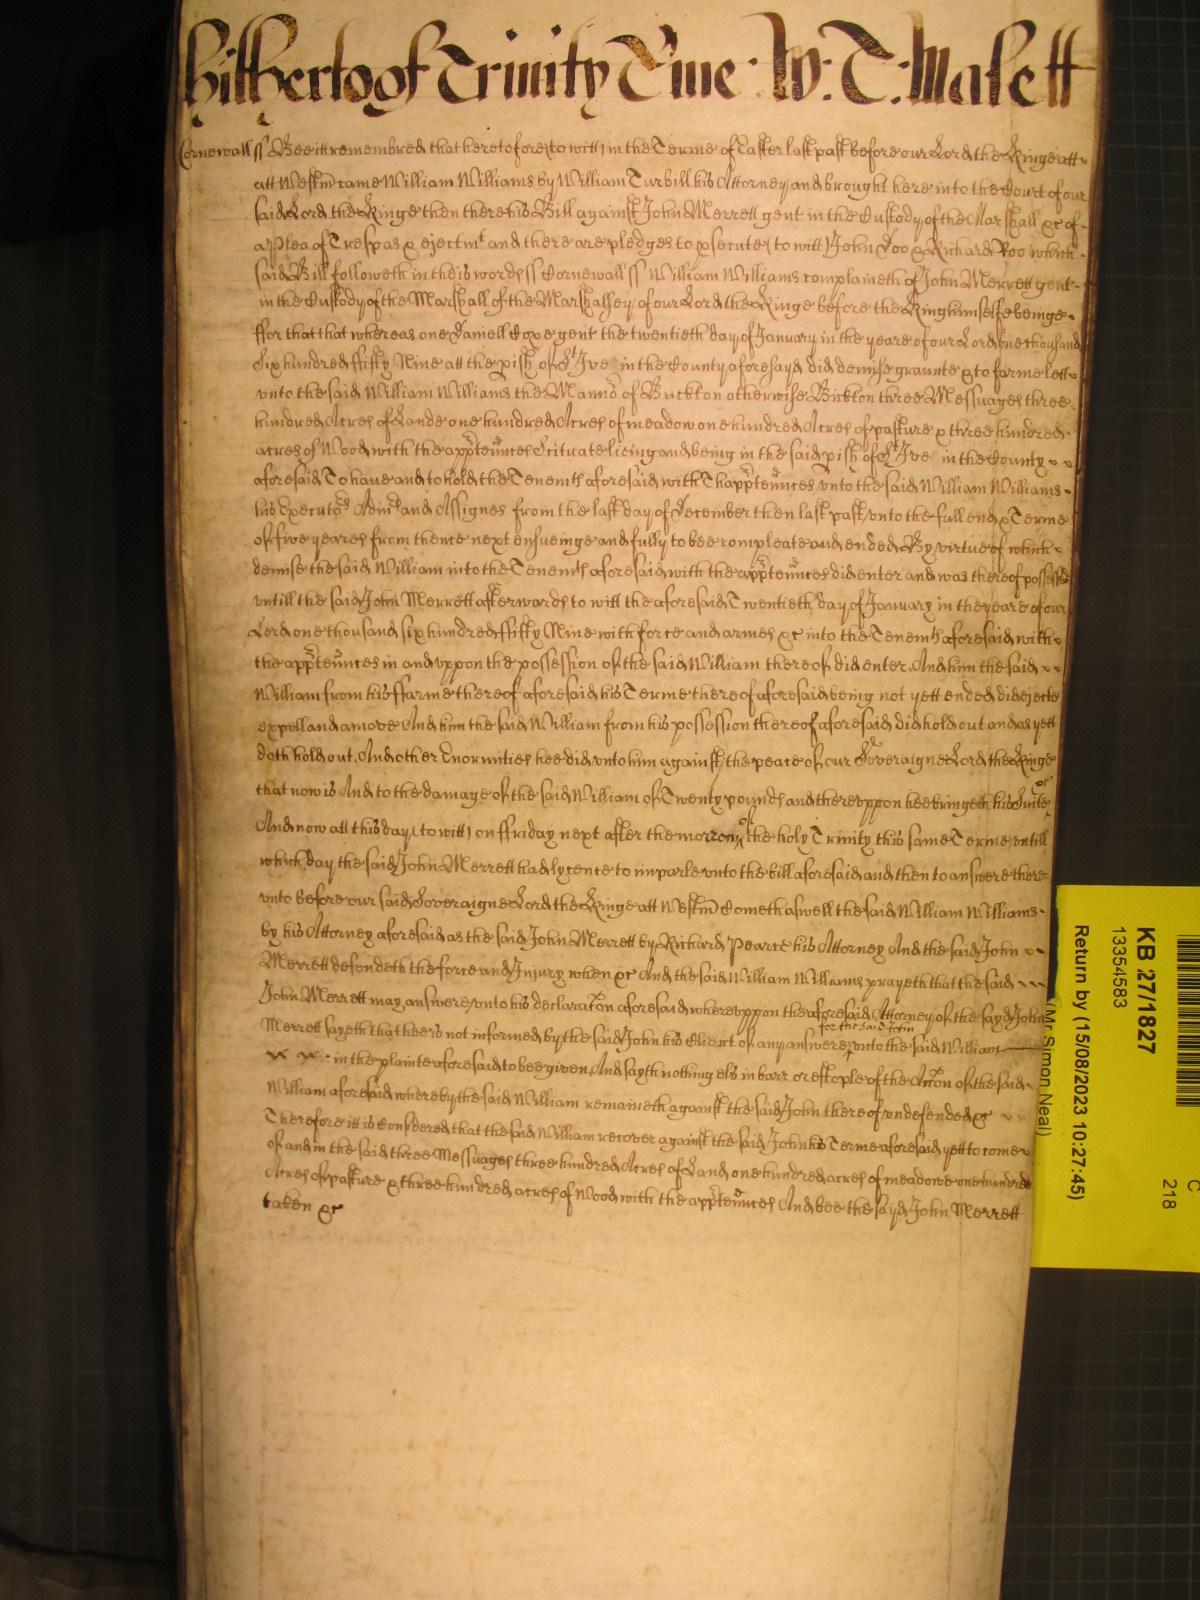 hitherto of Trinity Tme : W : T : Malett
Cornewall ss Bee itt remembred that heretofore (to witt) in the Terme of Easter last past before our Lord the Kinge att
att Westm came William Williams by William Turbill his Attorney and brought here into the Court of our
said Lord the Kinge then there his Bill against John Merrett gent in the Custody of the Marshall &c of
a plea of Trespas & ejectmt and there are pledges to psecute (to witt) John Doo & Richard Roo which
said Bill followeth in theis words ss Cornewall ss William Williams complaineth of John Merrett gent
in the Custody of the Marshall of the Marshalsey of our Lord the Kinge before the King himselfe beinge
ffor that that whereas one Daniell Coxe gent the twentieth day of January in the yeare of our Lord one thousand
Six hundred ffifty Nine att the pish of St Ive in the County aforesayd did demise graunte & to farme lett
vnto the said William Williams the Mannor of Buckton otherwise Bickton three Messuages three
hundred Acres of Lande one hundred Acres of meadow one hundred Acres of pasture & three hundred
acres of Wood with the apptennces Scituate lieing and being in the said pish of St Ive in the County
aforesaid To have and to hold the Tenemts aforesaid with Thapptennces vnto the said William Williams
his Executors Admrs and Assignes from the last day of December then last past vnto the full end & Terme
of five yeares from thence next ensueinge and fully to bee compleate and ended By virtue of which
demise the said William into the Tenemts aforesaid with the apptennces did enter and was thereof possessed
vntill the said John Merrett afterwards to witt the aforesaid Twentieth day of January in the yeare of our
Lord one thousand six hundred ffifty Nine with force and armes &c into the Tenemts aforesaid with
the apptennces in and vppon the possession of the said William thereof did enter. And him the said
William from his ffarme thereof aforesaid his Terme thereof aforesaid being not yett ended did ejecte
expell and amove And him the said William from his possession thereof aforesaid did hold out and as yett
doth hold out. And other Enormities hee did vnto him against the peace of our Soveraigne Lord the Kinge
that now is And to the damage of the said William of Twenty pounds and therevppon hee bringeth his Suite &c
And now att this day (to witt) on ffriday next after the morrow of the holy Trinity this same Terme vntill
which day the said John Merrett had lycence to imparle vnto the bill aforesaid and then to answere there
vnto before our said Soveraigne Lord the Kinge att Westm Cometh aswell the said William Williams
by his Attorney aforesaid as the said John Merrett by Richard Pearce his Attorney And the said John
Merrett defendeth the force and Injury when &c And the said William Williams prayeth that the said
John Merrett may answere vnto his declaraton aforesaid wherevppon the aforesaid Attorney of the sayd John
Merrett sayeth that hee is not informed by the said John his Client of any answere for the said John vnto the said William
in the plainte aforesaid to bee given And sayth nothing els in barr or estople of the Acton of the said
William aforesaid whereby the said William remaineth against the said John thereof vndefended &c
Therefore itt is Considered that the said William recover against the said John his Terme aforesaid yett to come
of and in the said three Messuages three hundred Acres of Land one hundred acres of meadowe one hundred
Acres of pasture & three hundred acres of Wood with the apptennces And bee the sayd John Merrett
taken &c
C
218
KB 27/1827
13354583
Return by (15/08/2023 10:27:45)
(Mr Simon Neal)